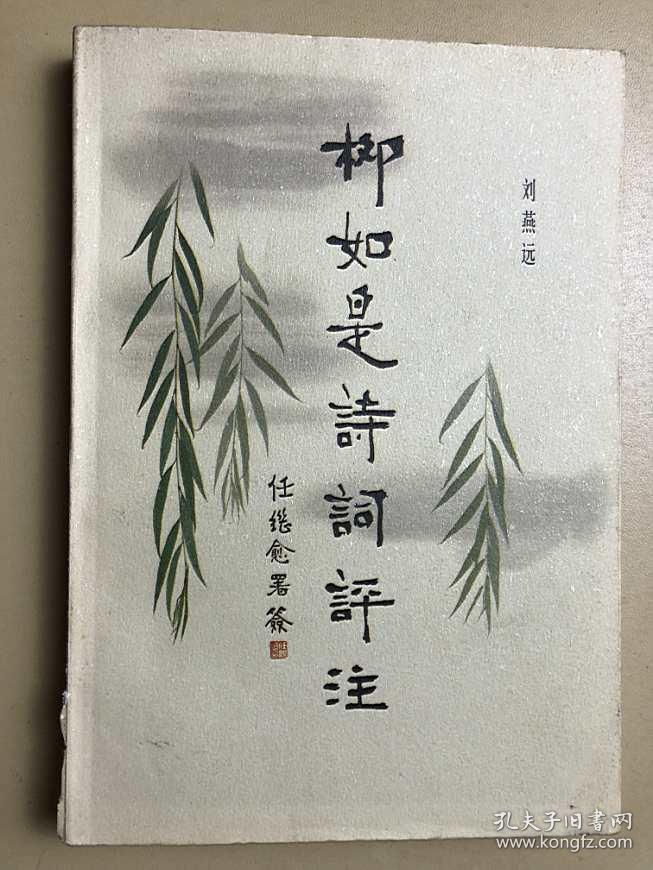 刘燕远
柳如是詩詞評注
任继愈署簽
孔夫子旧书网
www.kongfz.com